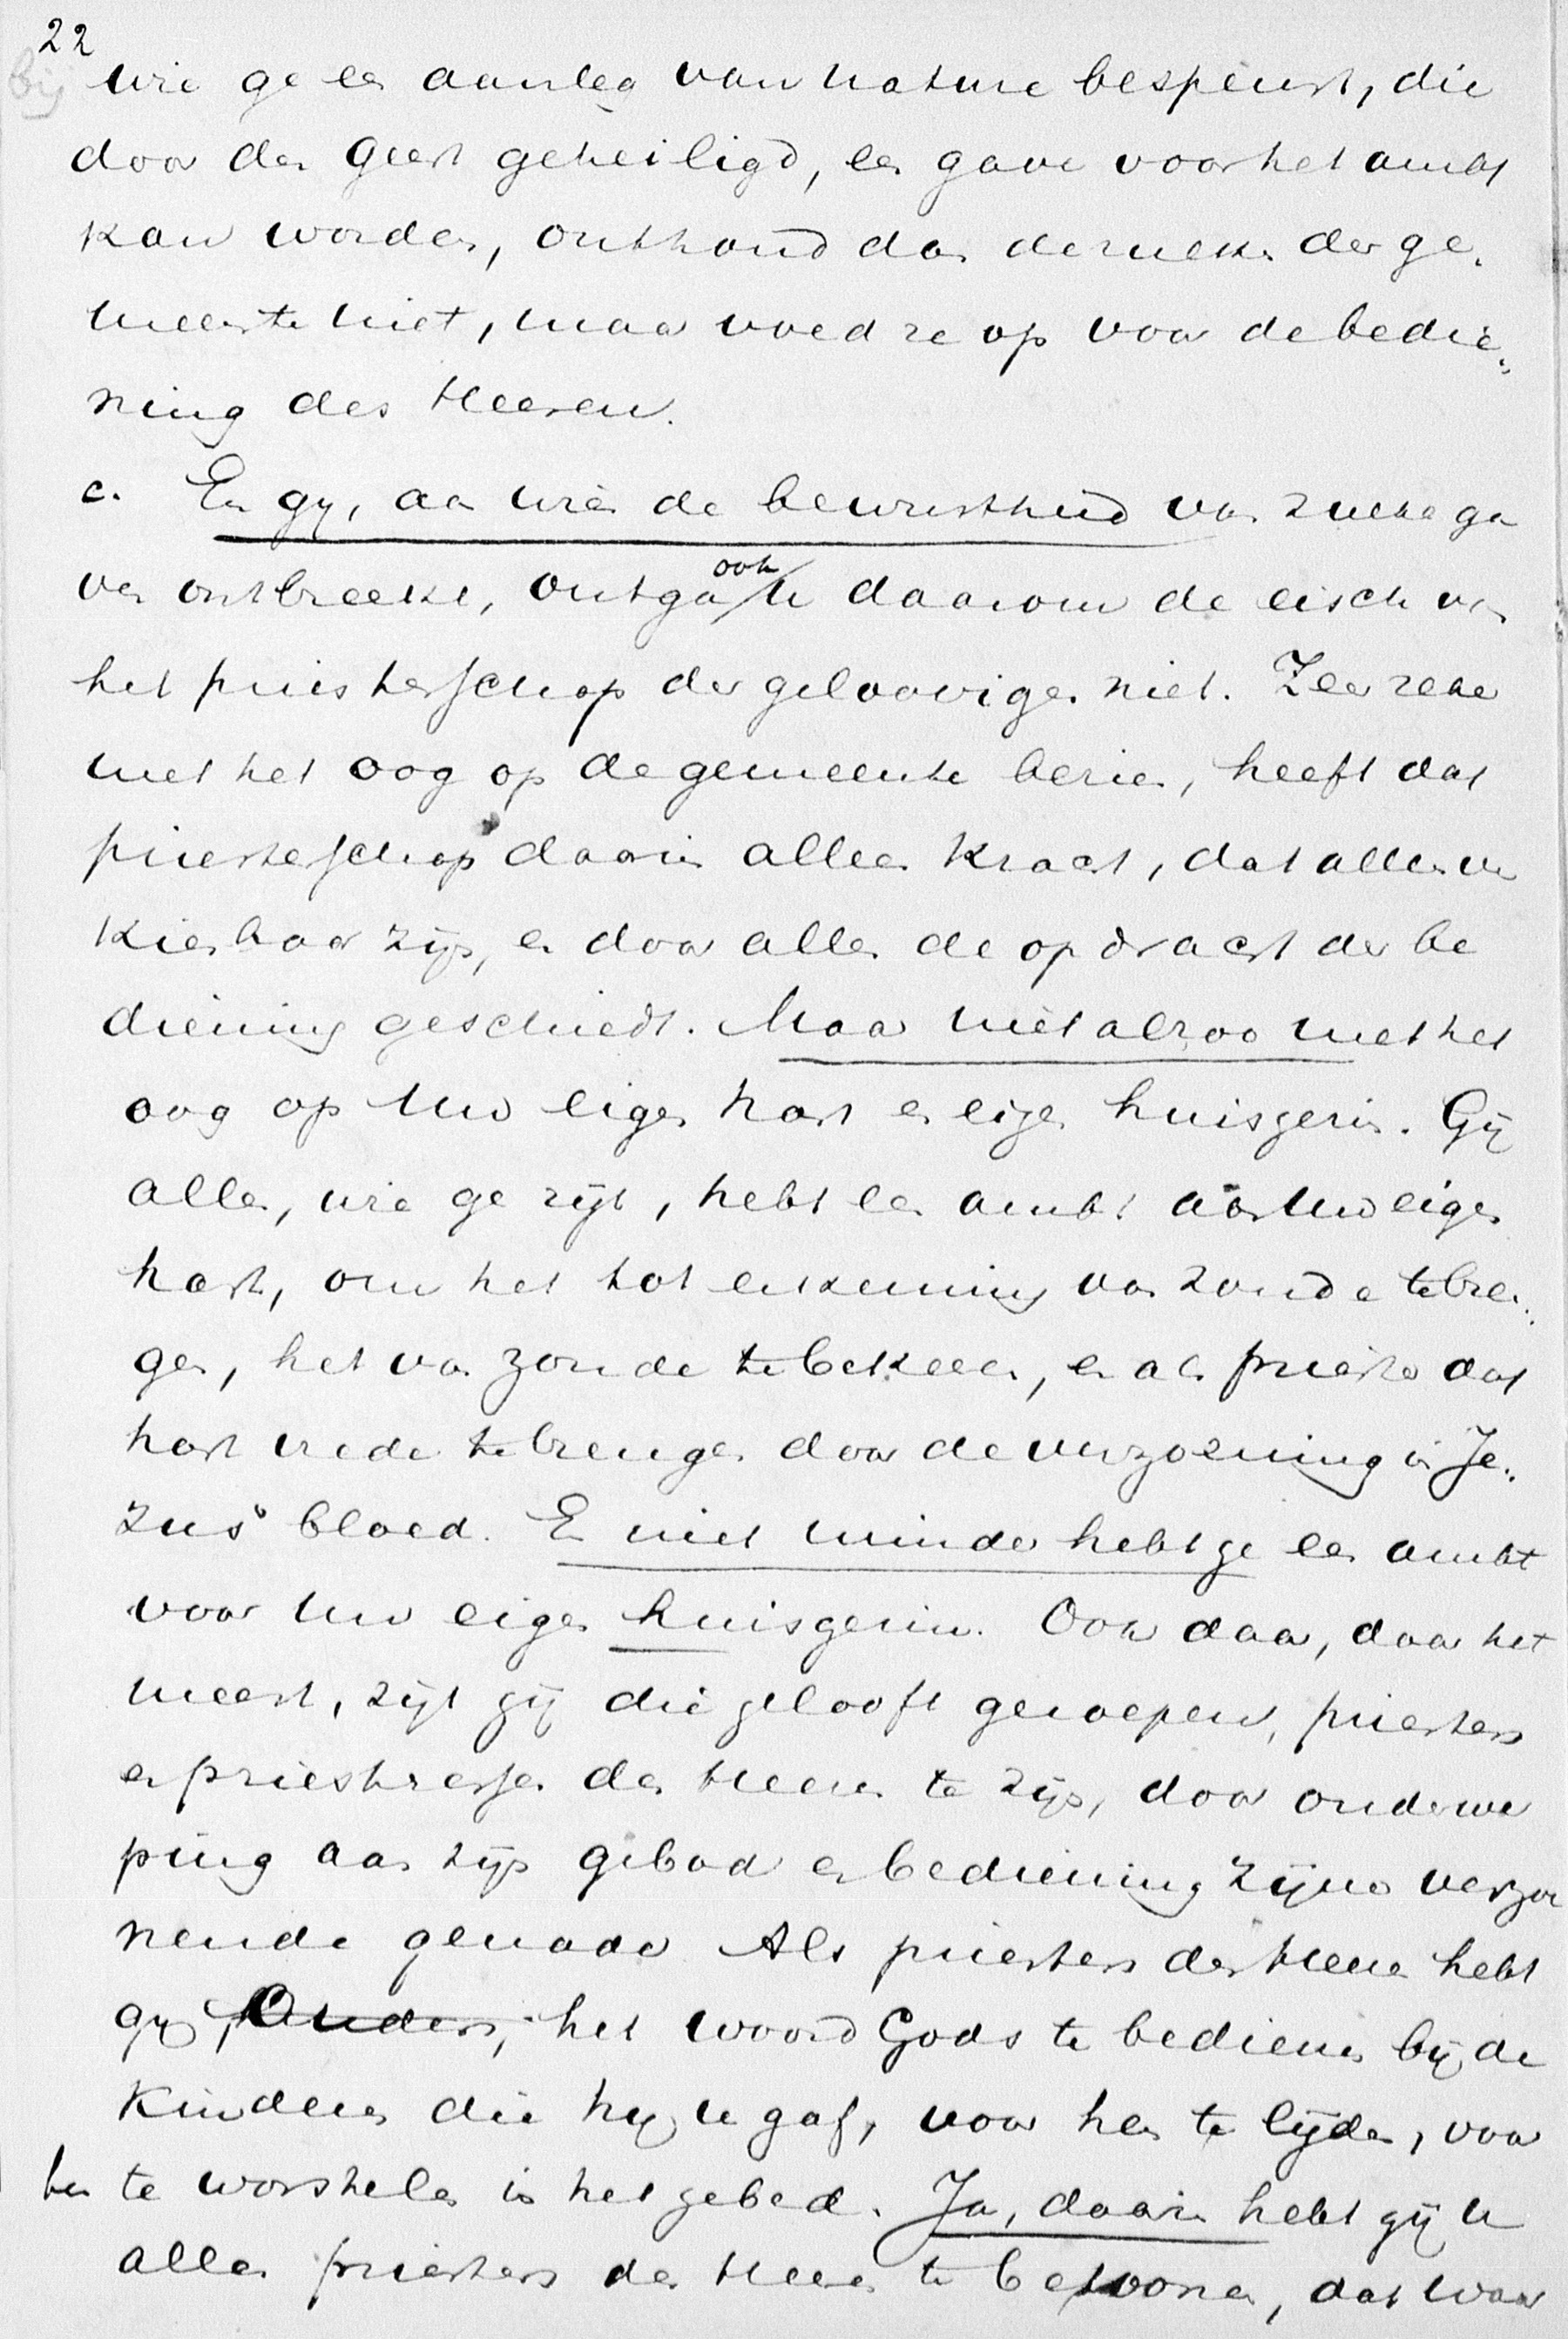 22
bij wie ge een aanleg van nature bespeurt, die
door den Geest geheiligd, een gave voor het ambt
kan worden, onthoud dan dezulken der ge„
meente niet, maar voed ze op voor de bedie„
ning des Heeren.
c. En gij, aan wien de bewustheid van zulke ga
ven ontbreekt, ontga ook u daarom de eisch van
het priesterschap der geloovigen niet. Zeer zeker
met het oog op de gemeente bezien, heeft dat
priesterschap daarin alleen kracht, dat allen ver
kiesbaar zijn, en door allen de opdracht der be
diening geschiedt. Maar niet alzoo met het
oog op Uw eigen hart en eigen huisgezin. Gij
allen, wie ge zijt, hebt een ambt aan Uw eigen
hart, om het tot erkenning van zonde te bren„
gen, het van zonde te bekeeren, en als priester dat
hart vrede te brengen door de verzoening in Je„
zus' bloed. En niet minder hebt ge een ambt
voor Uw eigen huisgezin. Ook daar, daar het
meest, zijt gij die gelooft geroepen, priesters
en priesteressen des Heeren te zijn, door onderwer
ping aan zijn gebod en bediening zijner verzoe
nende genade Als priesters des Heeren hebt
gij, Ouders, het woord Gods te bedienen bij de
kinderen die hij u gaf, voor hen te lijden, voor
hen te worstelen in het gebed. Ja, daarin hebt gij u
allen priesters des Heeren te betoonen, dat waar